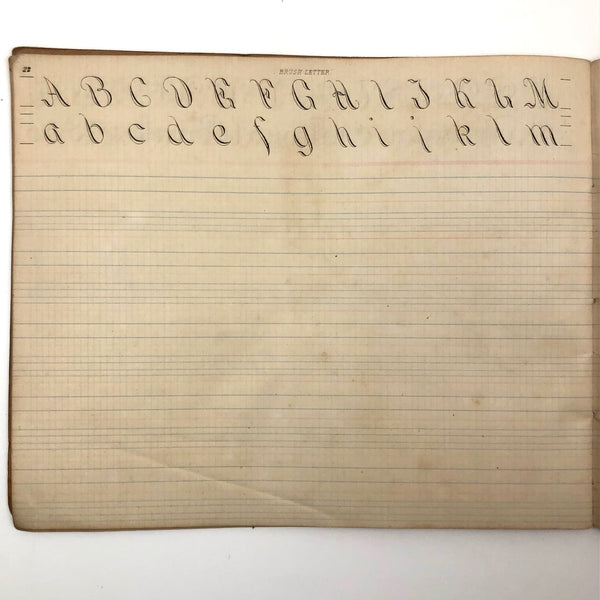 BRUSH LETTER
A B C D E F G H I J K L M
a b c d e f g h i j k l m